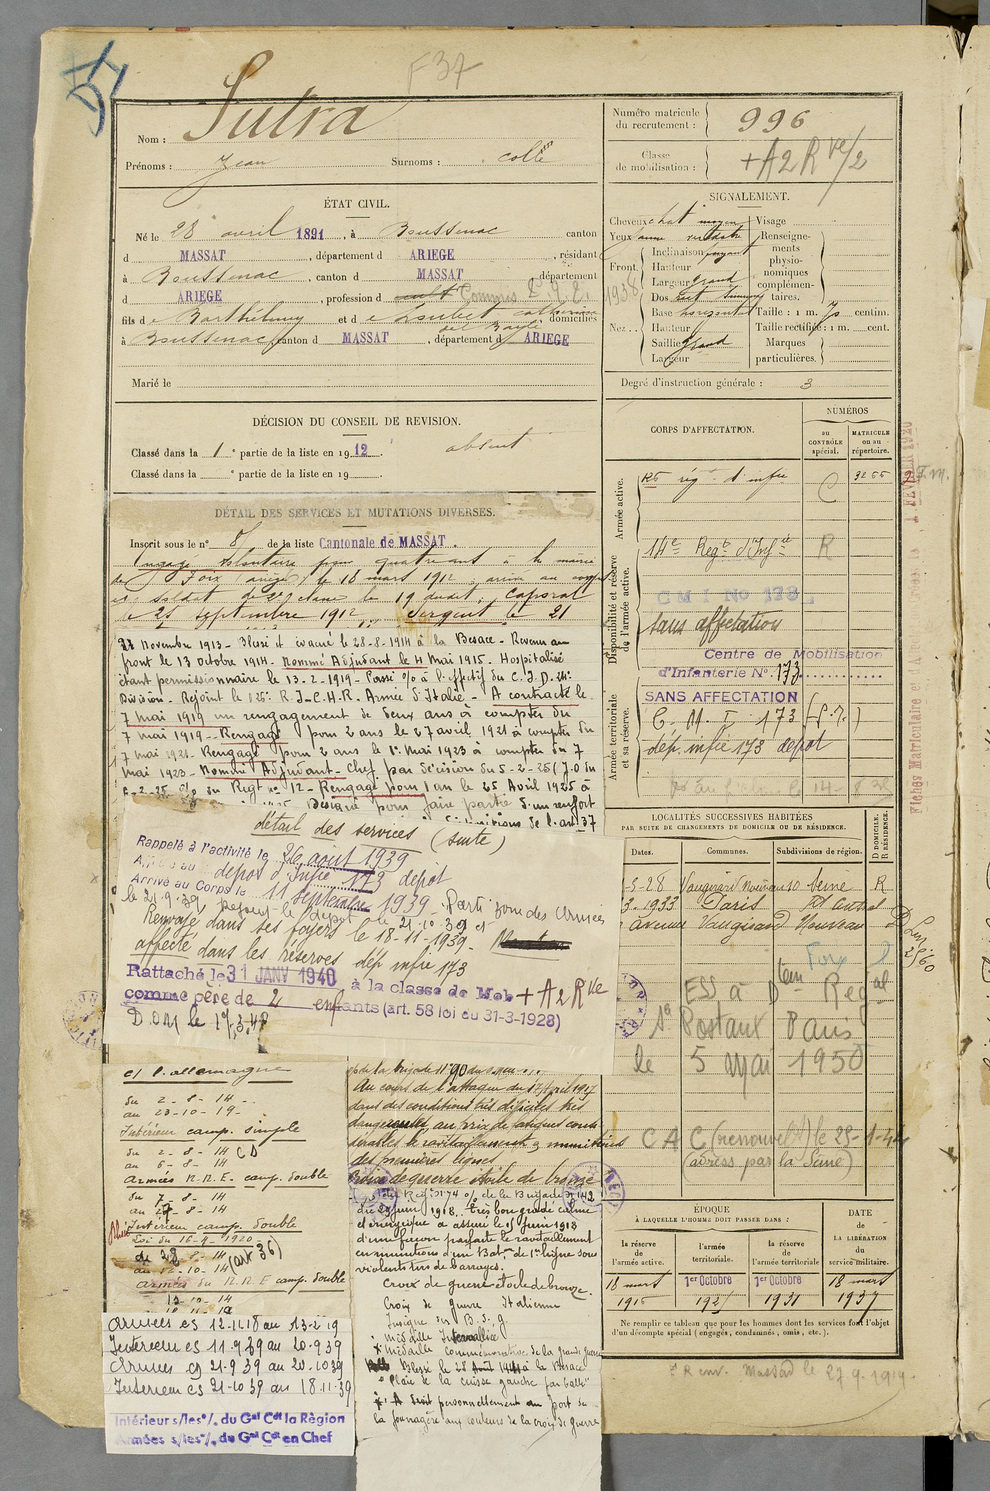 F37
Nom : Sutra
Prénoms : Jean Surnoms : colle
Numéro matricule du recrutement : 996
Classe de mobilisation : +A2R ve/2
ÉTAT CIVIL.
Né le 28 avril 1891, à Boussenac canton
d MASSAT, département d ARIEGE, résidant
à Boussenac, canton d MASSAT, département
d ARIEGE, profession d cult Commis
fils de Barthélemy et de Loubet Catherine domiciliés
à Boussenac, canton d MASSAT, département d ARIEGE
Marié le
SIGNALEMENT.
Cheveux chat moyen
Yeux
Front. Inclinaison fuyant
Hauteur
Largeur grand
1938
Nez . . Dos
Base horizontal
Hauteur
Saillie grand
Largeur
Visage
Renseignements physionomiques complémentaires.
Taille : 1 m. 70 centim.
Taille rectifiée : 1 m. cent.
Marques particulières.
Degré d'instruction générale : 3
DÉCISION DU CONSEIL DE REVISION.
Classé dans la 1e partie de la liste en 1912. absent
Classé dans la e partie de la liste en 19
DÉTAIL DES SERVICES ET MUTATIONS DIVERSES.
Inscrit sous le n° 8 de la liste Cantonale de MASSAT.
Engagé volontaire pour quatre ans à la mairie
de Foix (ariège) le 18 mars 1912, arrivé au corps
et soldat de 2e classe le 19 dudit, Caporal
le 25 septembre 1912 Sergent le 21
21 Novembre 1913 - Blessé et évacué le 28-8-1914 à la Besace - Revenu au
front le 13 octobre 1914 - Nommé Adjudant le 4 Mai 1915 - Hospitalisé
étant permissionnaire le 13-2-1919 - Passé o/o à l'effectif du C.I.D. 24e
Division - Rejoint le 126e R.I-C.H.R. Armée d'Italie - A contracté le
7 mai 1919 un rengagement de deux ans à compter du
7 mai 1919 - Rengagé pour 2 ans le 27 avril 1921 à compter du
7 mai 1921. Rengagé pour 2 ans le 1er Mai 1923 à compter du 7
Mai 1923 - Nommé Adjudant-Chef par décision du 5-2-25 (J.O du
6-2-25 o/o du Regt n° 12 - Rengagé pour 1 an le 25 Avril 1925 à
Désigné pour faire partie d'un renfort
de l'art 37
détail des services (suite)
Rappelé à l'activité le 26 août 1939
Arrivé au dépôt d'Infie 173 dépôt
Arrivé au Corps le 11 septembre 1939. Parti zone des Armées
le 21-9-39 rejoint le dépôt le 21-10-39 et
Renvoyé dans ses foyers le 18-11-1939.
affecté dans les réserves dép infie 173
Rattaché le 31 JANV 1940 à la classe de Mob +A2Rve
comme père de 2 enfants (art. 58 loi du 31-3-1928)
D.O.M le 17.3.48
CORPS D'AFFECTATION.
NUMÉROS
au CONTRÔLE spécial.
MATRICULE ou au répertoire.
Armée active.
126 rég d'infie 3255
Disponibilité et réserve de l'armée active.
14e Regt d'Infie R
C M I No 173
sans affectation
Centre de Mobilisation
d'Infanterie No. 173
Armée territoriale et sa réserve.
SANS AFFECTATION
C. M. I 173 (S.P.)
dép. infie 173 dépôt
Fiches Matriculaire et d'A
1 FEVRIER 1920
LOCALITÉS SUCCESSIVES HABITÉES
PAR SUITE DE CHANGEMENTS DE DOMICILE OU DE RÉSIDENCE.
Dates. Communes. Subdivisions de région. D DOMICILE. R RÉSIDENCE.
-5-28 Vaugirard Nouveau 10 Seine R
3-1933 Paris Bt Central
avenue Vaugirard Nouveau
Foix
ESS à Dtem Regal
Postaux Paris
le 5 mai 1950
CAC (renouvelé) le 29-1-44
(adress par la Seine)
et l'allemagne
du 2-8-14
au 23-10-19
Intérieur camp. simple
du 2-8-14 CD
au 6-8-14
Armées N.R.E. camp. double
du 7-8-14
au 27-8-14
Intérieur camp. double
Loi du 16-9-1920
(art 36)
de 28-8-14
au 12-10-14
Armées du N.R.E camp. double
13-10-14
Armées CS 12-11-18 au 13-2-19
Intérieur CS 11-9-39 au 20-9-39
Armées CS 21-9-39 au 20-10-39
Intérieur CS 21-10-39 au 18-11-39
Intérieur s/les o/. du Gal Cdt la Région
Armées s/les o/. du Gal Cdt en Chef
o/o de la brigade n° 90 du
Au cours de l'attaque du 17 Avril 1917
dans des conditions très difficiles très
dangereuses, au prix de fatigues consi-
dérables le ravitaillement en munitions
des premières lignes
Croix de guerre étoile de bronze
du Regt n° 74 o/. de la Brigade n° 142
du 29 juin 1918. très bon gradé calme
et énergique a assuré le 15 Juin 1918
d'une façon parfaite le ravitaillement
en munitions d'un Batон de 1ère ligne sous
violents tirs de barrages.
Croix de guerre étoile de bronze.
Croix de guerre Italienne
Insigne des B. S. g.
x médaille Interalliée
x médaille commémorative de la grande guerre
Blessé le 28 Août 1914 à la Besace
"Plaie de la cuisse gauche par balle"
x A droit personnellement au port de
la fourragère aux couleurs de la croix de guerre
ÉPOQUE
À LAQUELLE L'HOMME DOIT PASSER DANS :
la réserve de l'armée active. l'armée territoriale. la réserve de l'armée territoriale
DATE de LA LIBÉRATION du service militaire.
18 mars 1er Octobre 1er Octobre 18 mars
1915 1927 1931 1937
Ne remplir ce tableau que pour les hommes dont les services font l'objet
d'un décompte spécial (engagés, condamnés, omis, etc.).
R env. Massat le 27.9.1919.